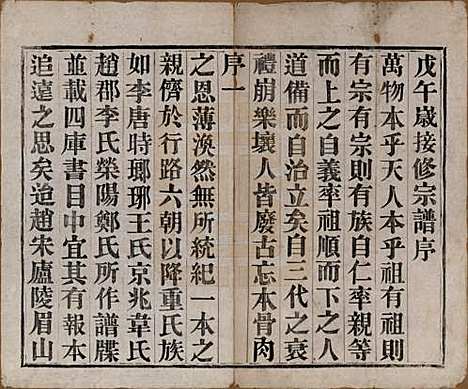 戊午歲接修宗譜序
萬物本乎天人本乎祖有祖則
有宗有宗則有族自仁率親等
而上之自義率祖順而下之人
道備而自治立矣自三代之衰
禮崩樂壞人皆廢古忘本骨肉
序一
之恩薄渙然無所統紀一本之
親儕於行路六朝以降重氏族
如李唐時瑯琊王氏京兆韋氏
趙郡李氏榮陽鄭氏所作譜牒
並載四庫書目中宜其有報本
追遠之思矣迨趙宋廬陵眉山